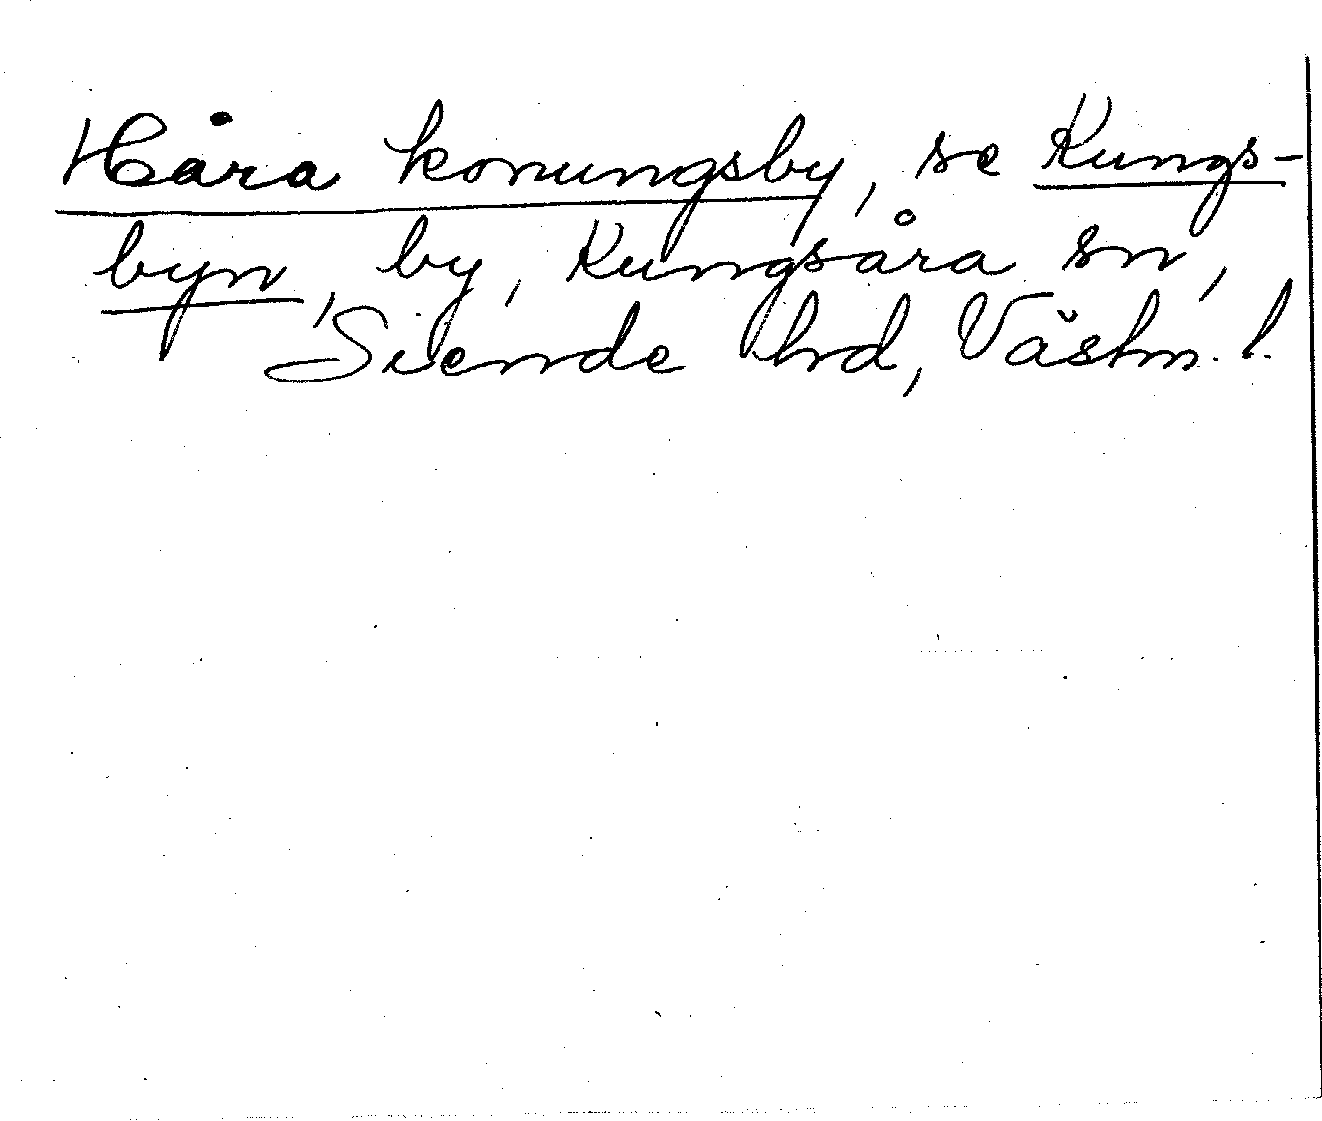 Håra konungsby, se Kungs-
byn, by, Kungsåra sn,
Siende hd, Västm. l.